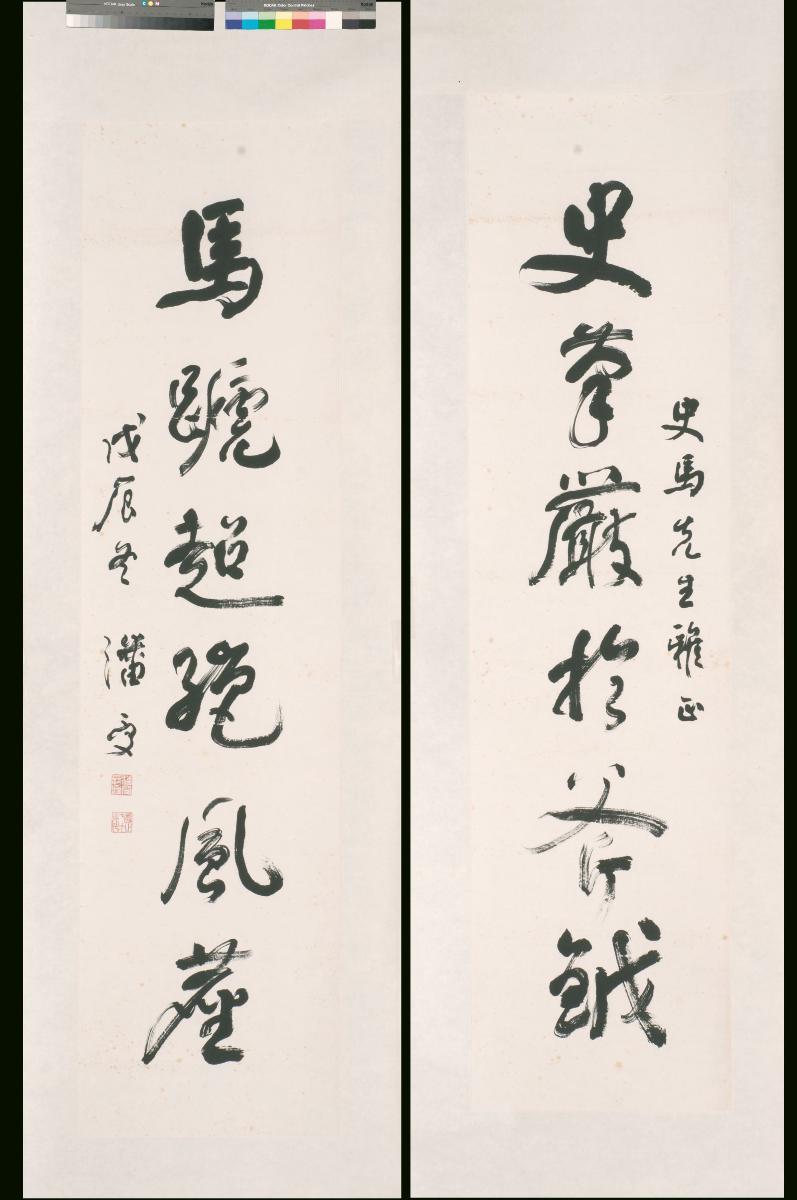 史筆嚴於斧鉞
史馬先生雅正
馬蹏超絶風塵
戊辰冬 潘受
KODAK Gray Scale
Kodak
KODAK Color Control Patches
Kodak